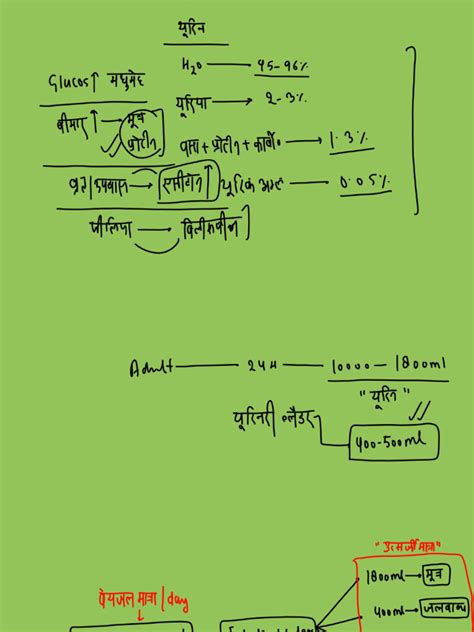 यूरिन
H₂O — 95-96%
Glucos↑ मधुमेह
यूरिया → 2-3%
बीमार↑ → मूत्र प्रोटीन
वसा + प्रोटीन + कार्बो० → 1.3%
व्रत/उपवास → एसीटोन↑
यूरिक अम्ल → 0.05%
पीलिया → बिलीरूबीन↑
Adult — 24H — 10000-1800ml
"यूरिन"
यूरिनरी ब्लैडर
400-500ml
"उत्सर्जी मात्रा"
1800ml → मूत्र
पेयजल मात्रा/day
400ml → जलवाष्प